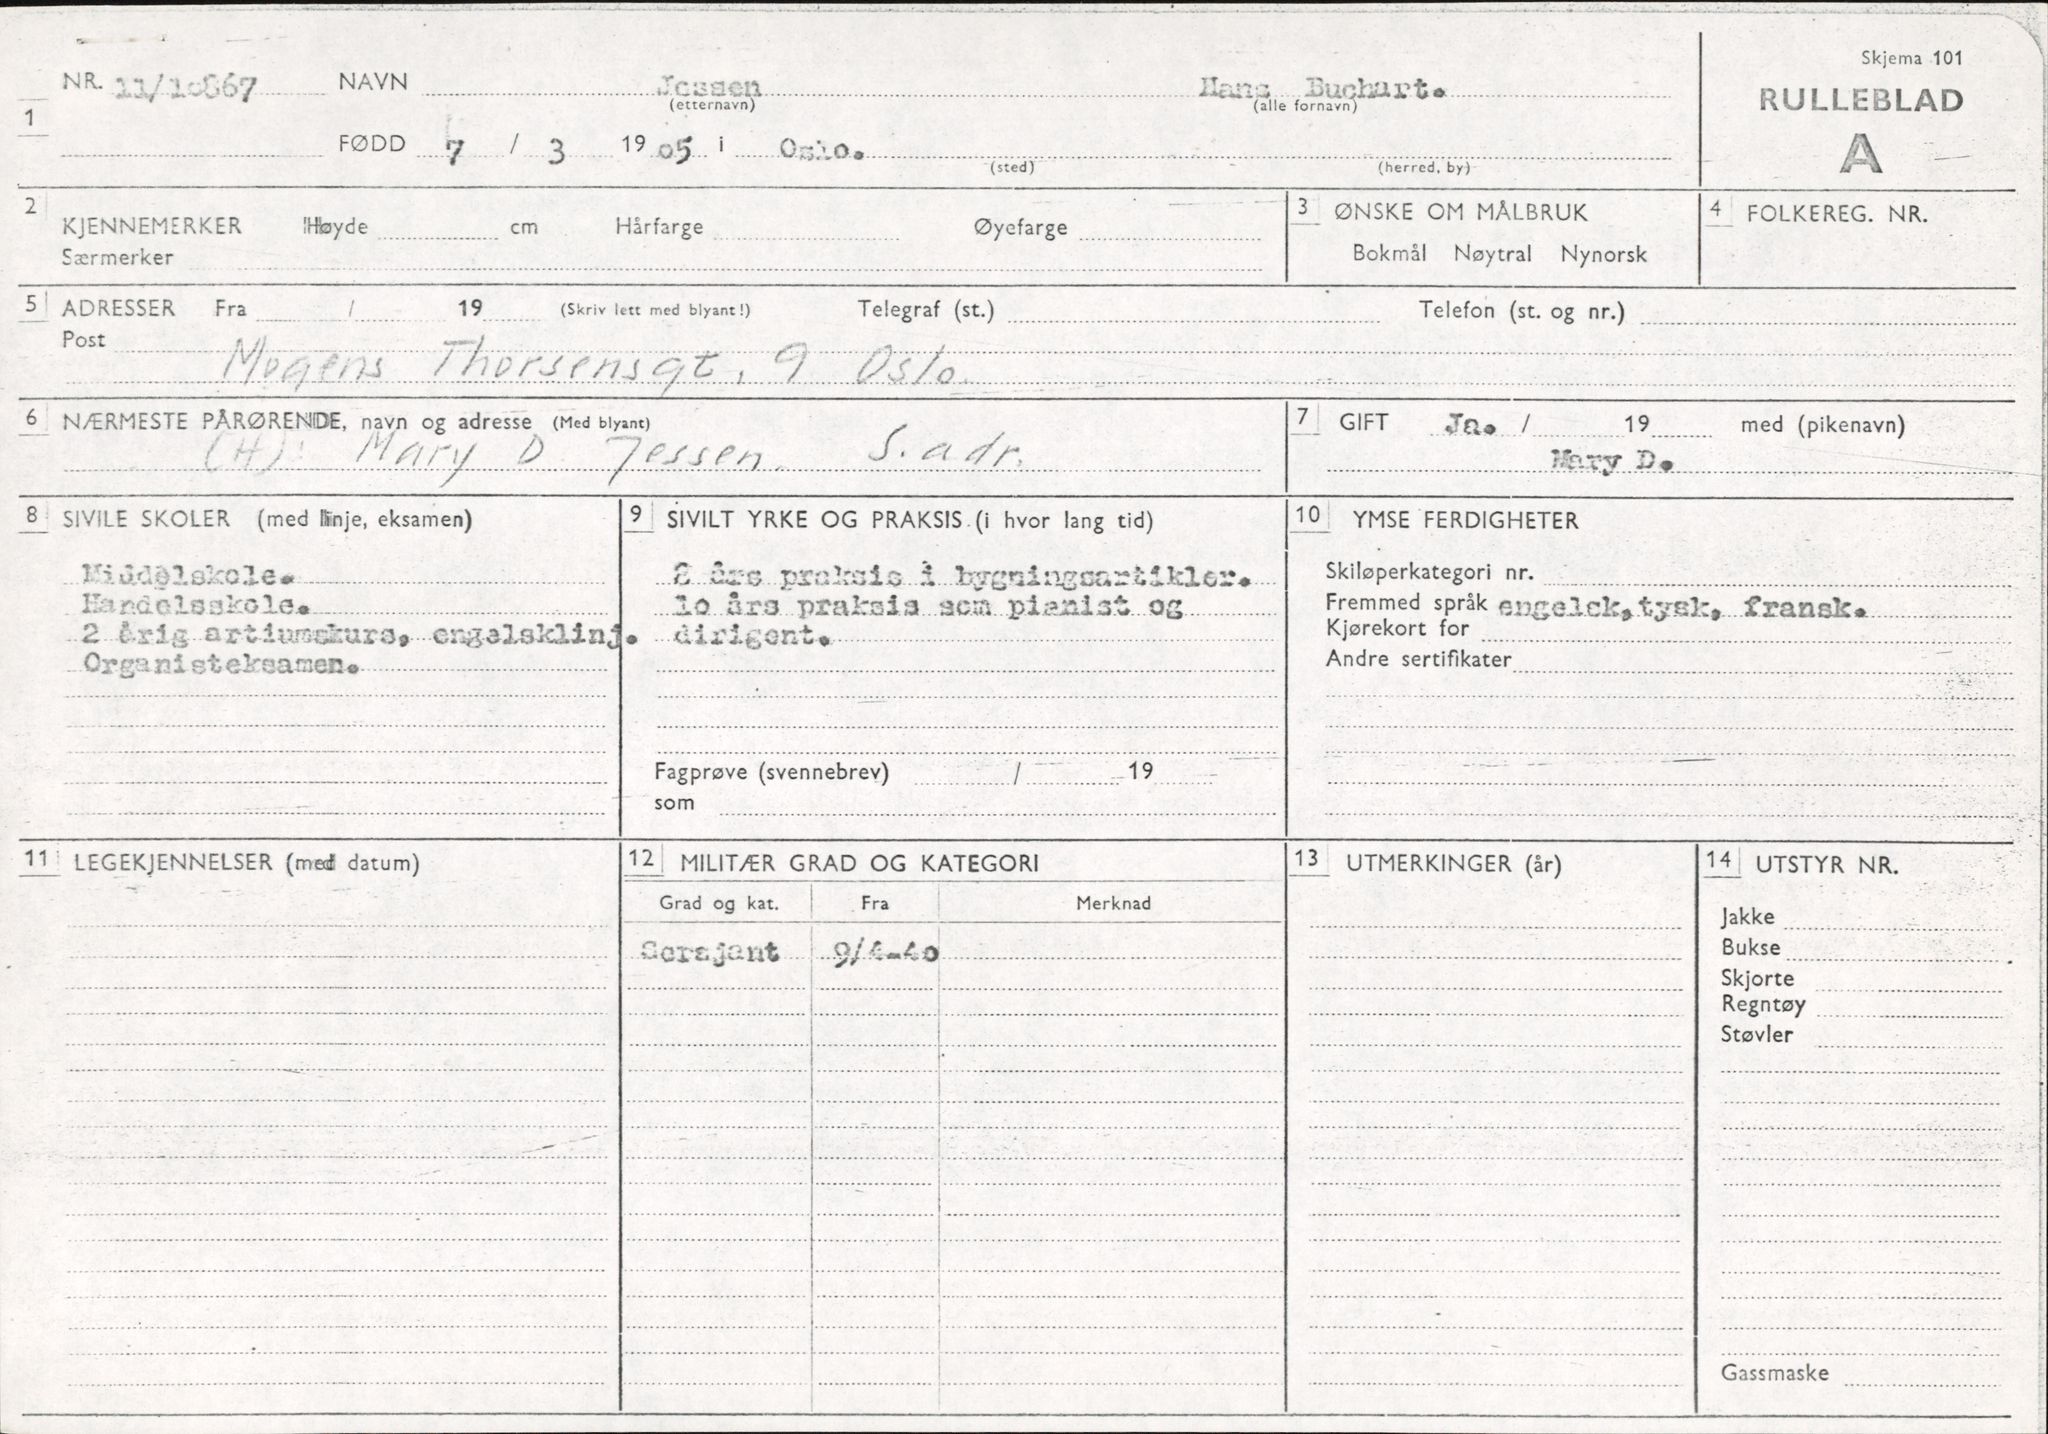 Skjema 101
RULLEBLAD
A
1 NR. 11/10867 NAVN Jessen Hans Buchart.
(etternavn) (alle fornavn)
FØDD 7 / 3 1905 i Oslo.
(sted) (herred, by)
2 KJENNEMERKER Høyde cm Hårfarge Øyefarge
Særmerker
3 ØNSKE OM MÅLBRUK
Bokmål Nøytral Nynorsk
4 FOLKEREG. NR.
5 ADRESSER Fra / 19 (Skriv lett med blyant!) Telegraf (st.) Telefon (st. og nr.)
Post
Mogens Thorsensgt. 9 Oslo.
6 NÆRMESTE PÅRØRENDE, navn og adresse (Med blyant)
(H): Mary D Jessen. S. adr.
7 GIFT Ja. / 19 med (pikenavn)
Mary D.
8 SIVILE SKOLER (med linje, eksamen)
Middelskole.
Handelsskole.
2 årig artiumskurs, engelsklinj.
Organisteksamen.
9 SIVILT YRKE OG PRAKSIS (i hvor lang tid)
8 års praksis i bygningsartikler.
10 års praksis som pianist og
dirigent.
Fagprøve (svennebrev) / 19
som
10 YMSE FERDIGHETER
Skiløperkategori nr.
Fremmed språk engelsk, tysk, fransk.
Kjørekort for
Andre sertifikater
11 LEGEKJENNELSER (med datum)
12 MILITÆR GRAD OG KATEGORI
Grad og kat. Fra Merknad
Sersjant 9/4-40
13 UTMERKINGER (år)
14 UTSTYR NR.
Jakke
Bukse
Skjorte
Regntøy
Støvler
Gassmaske